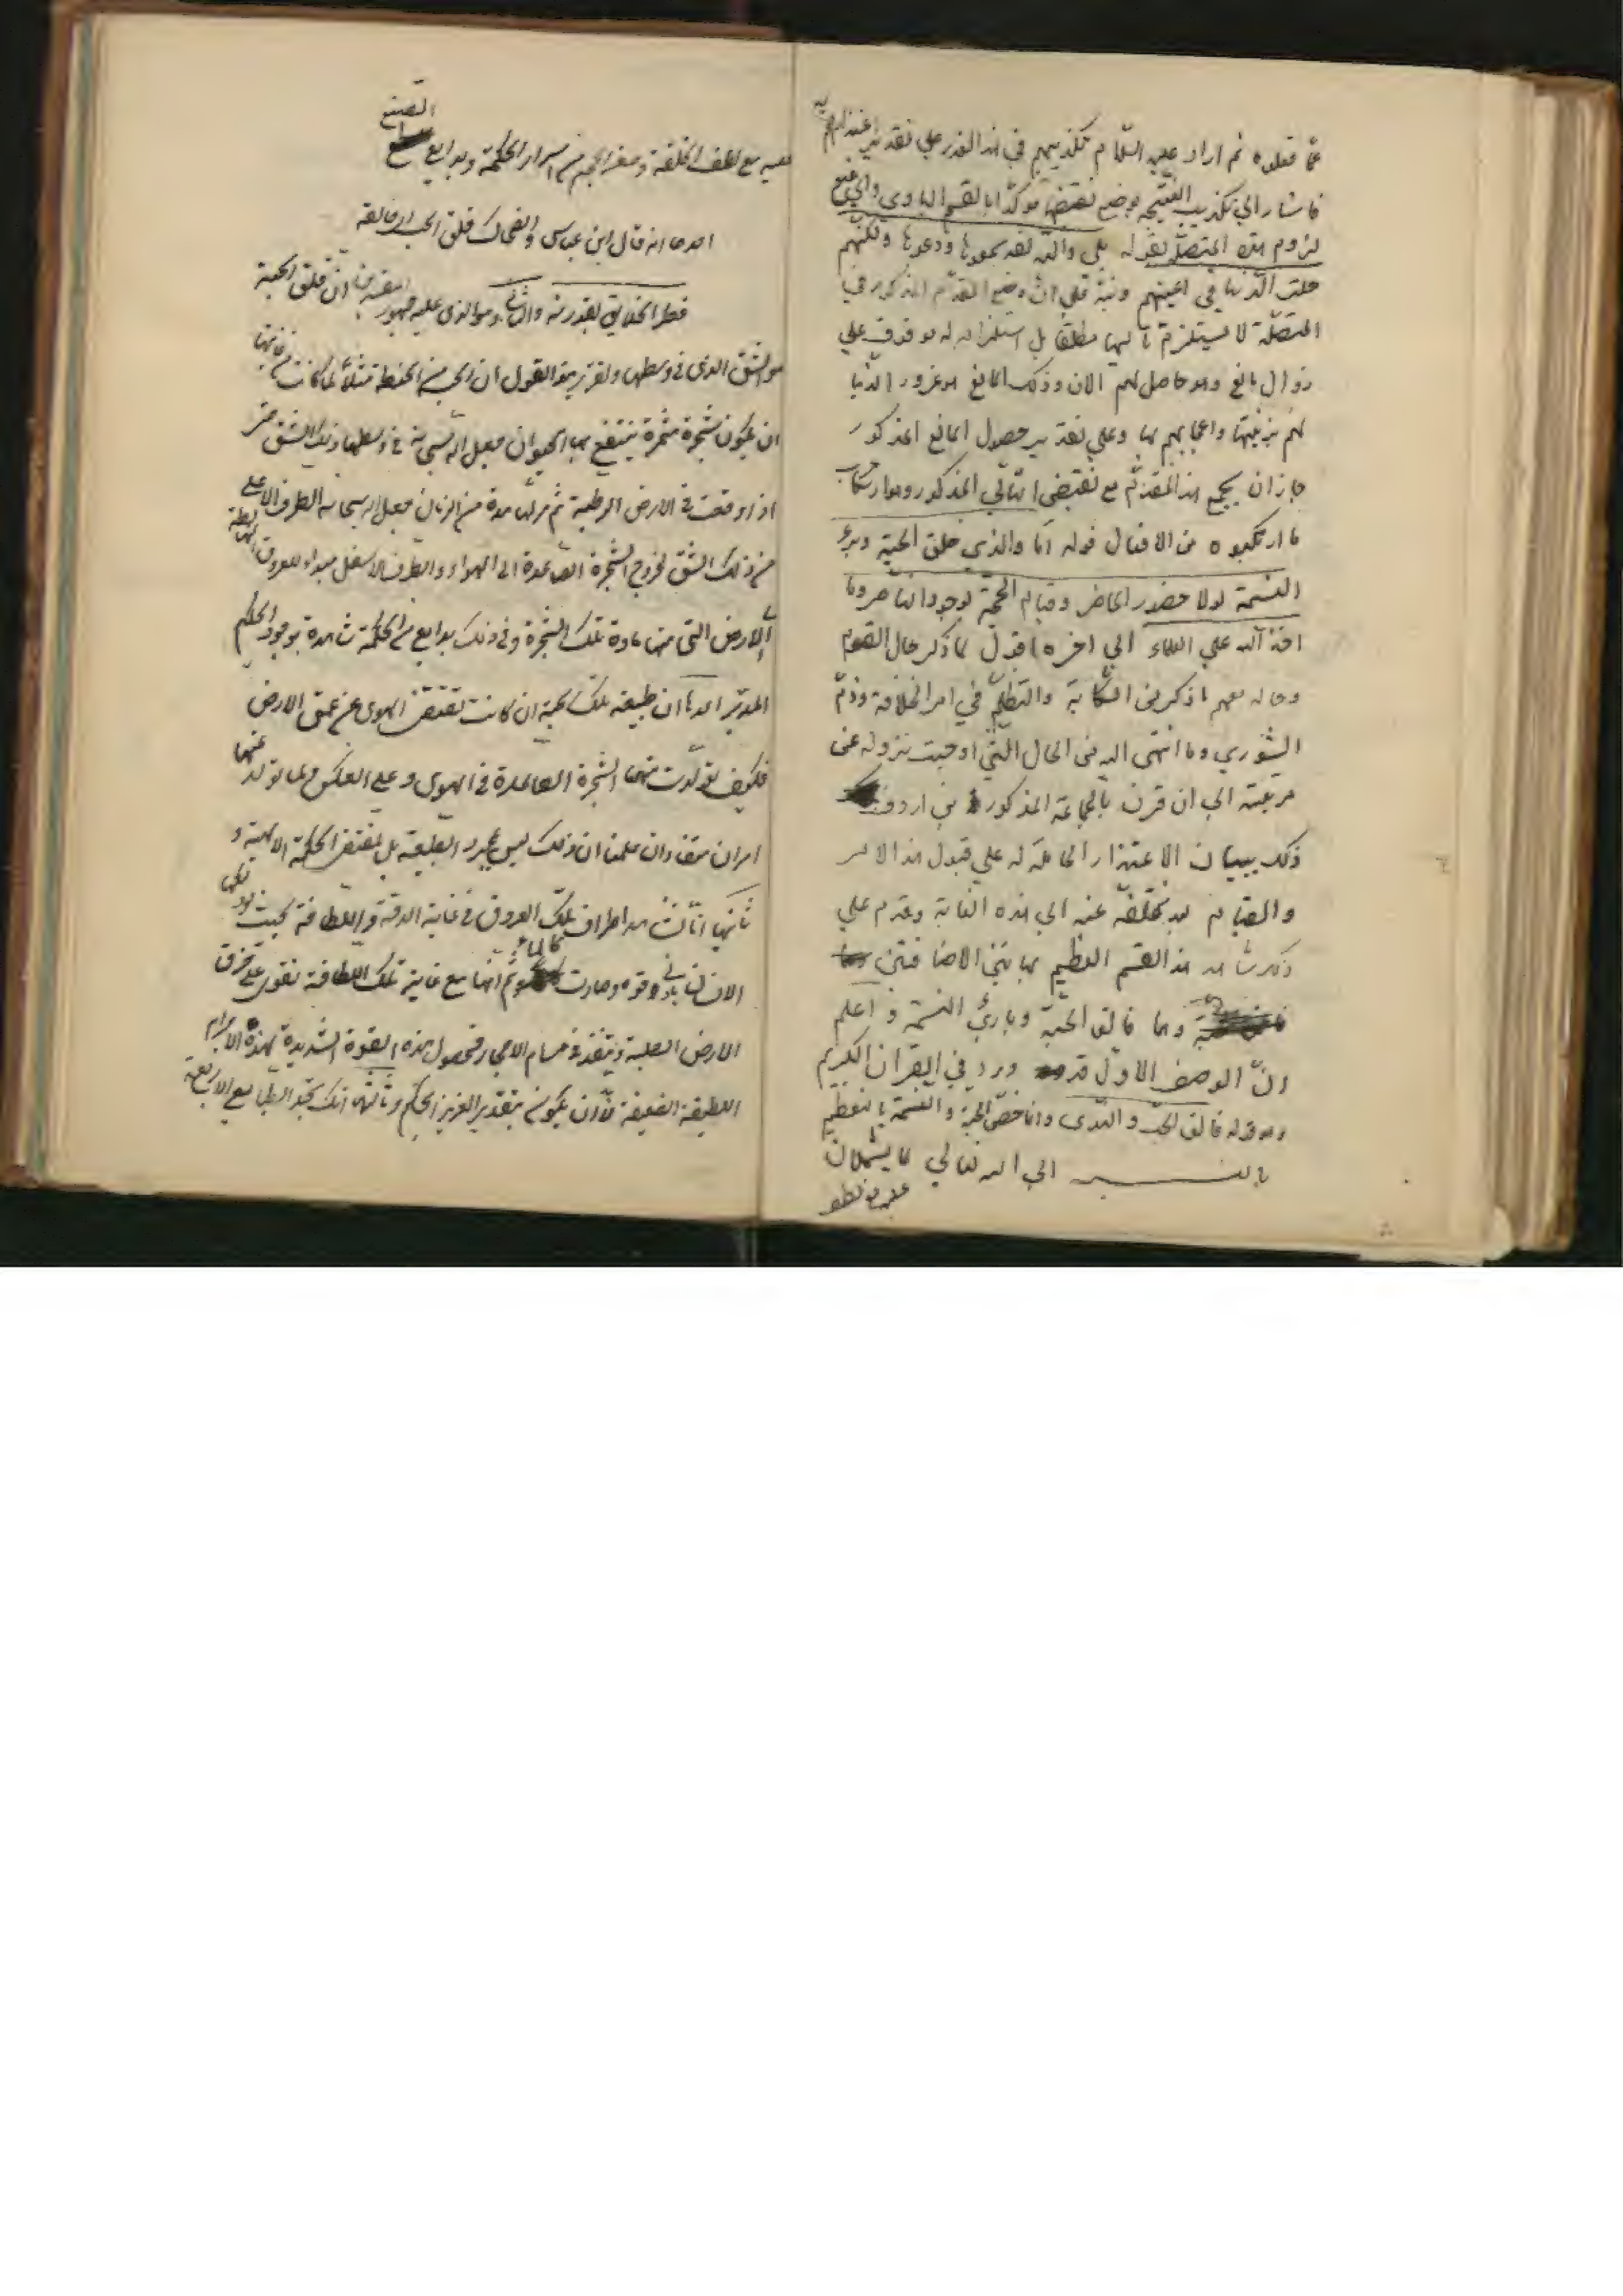 عمّا فعلوه ثم اراد عليه السّلام تكذيبهم في هذا العذر علي تقدير اعتذارهم به
فاشار الي تكذيب النتيجه بوضع نقيضها مؤكّدا بالقسم البادي والي منع
لزوم هذه المتصلة بقوله بلي والله لقد سمعوها ووعوها ولكنّهم
حلت الدّنيا في اعينهم ونبّه علي انّ وضع المقدّم المذكور في
المتصلة لا يستلزم تاليها مطلقا بل استلزامه له موقوف علي
زوال مانع وهو حاصل لهم الان وذلك المانع هو غرور الدّنيا
لهم بزينتها واعجابهم بها وعلي تقدير حصول المانع المذكور
جاز ان يجمع هذا المقدّم مع نقيض التالي المذكور وهو ارتكاب
ما ارتكبوه من الافعال قوله امّا والذي خلق الحبّة وبرء
النسمة لولا حضور الحاضر وقيام الحجّة لوجود الناصر وما
اخذ الله علي العلماء الي اخره اقول لما ذكر حال القوم
وحاله معهم ما ذكر من الشكاية والتظلّم في امر الخلافة وذمّ
الشوري وما انتهي اليه من الحال الّتي اوجبت نزوله عن
مرتبته الي ان قرن بالجماعة المذكورة في اردف
ذلك ببيان الاعتذار الحامله له علي قبول هذا الامر
والقيام به بعد تخلّفه عنه الي هذه الغاية وقدم علي
ذكر شاهد هذا القسم العظيم بهاتين الاضافتين
وهما فالق الحبّة وباري النسمة و اعلم
انّ الوصف الاوّل قد ورد في القران الكريم
وهو قوله فالق الحبّ والنّوي وانما خصّ الحبّة والنسمة بالتعظيم
بالنسبة الي الله تعالي لما يشتملان
عليه من لطف
عليه مع لطف الخلقة وصغر الحجم من اسرار الحكمة وبدايع الصنع
احدها انه قال ابن عباس والضحاك فلق الحب اي خالقه
فطر الخلايق بقدرته والثاني وهو الذي عليه جمهور المفسرين ان فلق الحبة
هو الشق الذي في وسطها وتقرير هذا القول ان الحبة من الحنطة مثلا لما كانت من غايتها
ان يكون شجرة مثمرة ينتفع بها الحيوان جعل الله سبحانه في وسطها ذلك الشق حتى
اذا وقعت في الارض الرطبة ثم مر بها مدة من الزمان جعل الله سبحانه الطرف الاعلى
من ذلك الشق لخروج الشجرة الصاعدة الى الهواء والطرف الاسفل مبداء للعروق الهابطة
في الارض التي منها مادة تلك الشجرة وفي ذلك بدايع من الحكمة شاهدة بوجود الحكيم
المدبر احدها ان طبيعة تلك الحبة ان كانت تقتضى الهوى في عمق الارض
فكيف تولدت منها الشجرة الصاعدة في الهوى وعلى العكس ولما تولد عنها
امران متضادان علمنا ان ذلك ليس بمجرد الطبيعة بل بمقتضى الحكمة الالهية و
ثانيها انا نشاهد اطراف تلك العروق في غاية الدقة واللطافة بحيث لو دلكها
الانسان بادنى قوة صارت كالماء ثم انها مع غاية تلك اللطافة تقوى على خرق
الارض الصلبة وينفذ في مسام الاحجار فحصول هذه القوة الشديدة لهذه الاجرام
اللطيفة الضعيفة لابد ان يكون بتقدير العزيز الحكيم وثالثها انك تجد الطبايع الاربعة